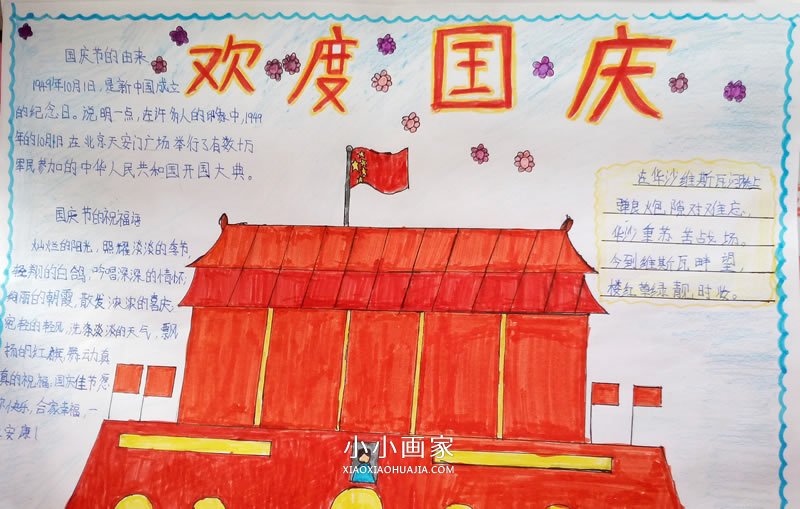 欢度国庆
国庆节的由来
1949年10月1日,是新中国成立
的纪念日。说明一点,在许多人的印象中,1949
年的10月1日在北京天安门广场举行了有数十万
军民参加的中华人民共和国开国大典。
国庆节的祝福语
灿烂的阳光,照耀淡淡的季节,
轻翔的白鸽,吟唱深深的情怀;
绚丽的朝霞,散发泱泱的喜庆;
轻的轻风,洗涤淡淡的天气,飘
扬的红旗,舞动真
真的祝福:国庆佳节愿
你快乐,合家幸福,一
安康!
在华沙维斯瓦河
炮,隙对难忘。
华沙重苏苦战场。
今到维斯瓦畔望,
楼红草绿靓,时妆。
小小画家
XIAOXIAOHUAJIA.COM